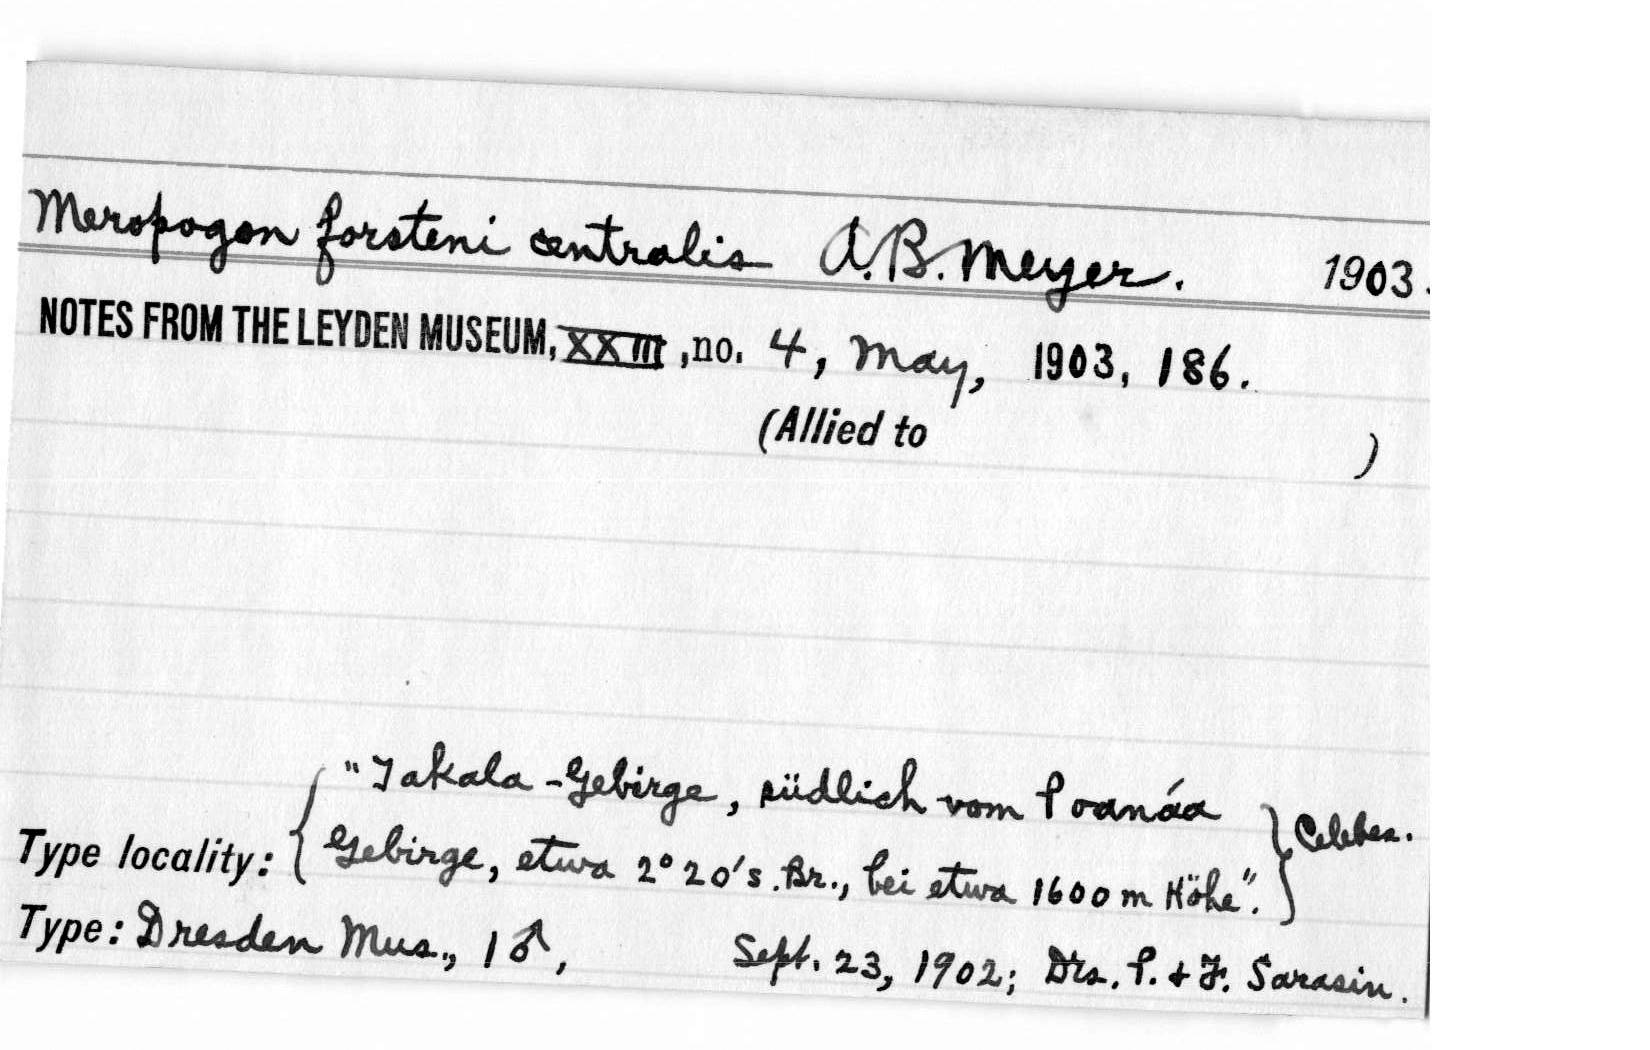 Meropogon forsteni centralis A.B. Meyer. 1903.
NOTES FROM THE LEYDEN MUSEUM, XXIII, no. 4, May, 1903, 186.
(Allied to )
"Takala-Gebirge, südlich vom Poanáa
Type locality: { Gebirge, etwa 2° 20's. Br., bei etwa 1600 m Höhe". } Celebes.
Type: Dresden Mus., 1 ♂, Sept. 23, 1902; Drs. P. & F. Sarasin.